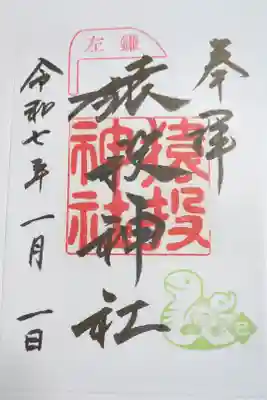 奉拝
左鎌
猿投神社
猿投
神社
令和七年一月一日